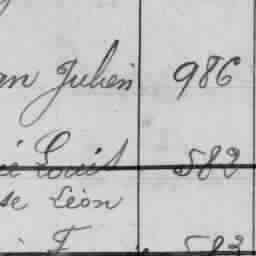 an Julien 986
ie Louis 582
se Léon
F 583